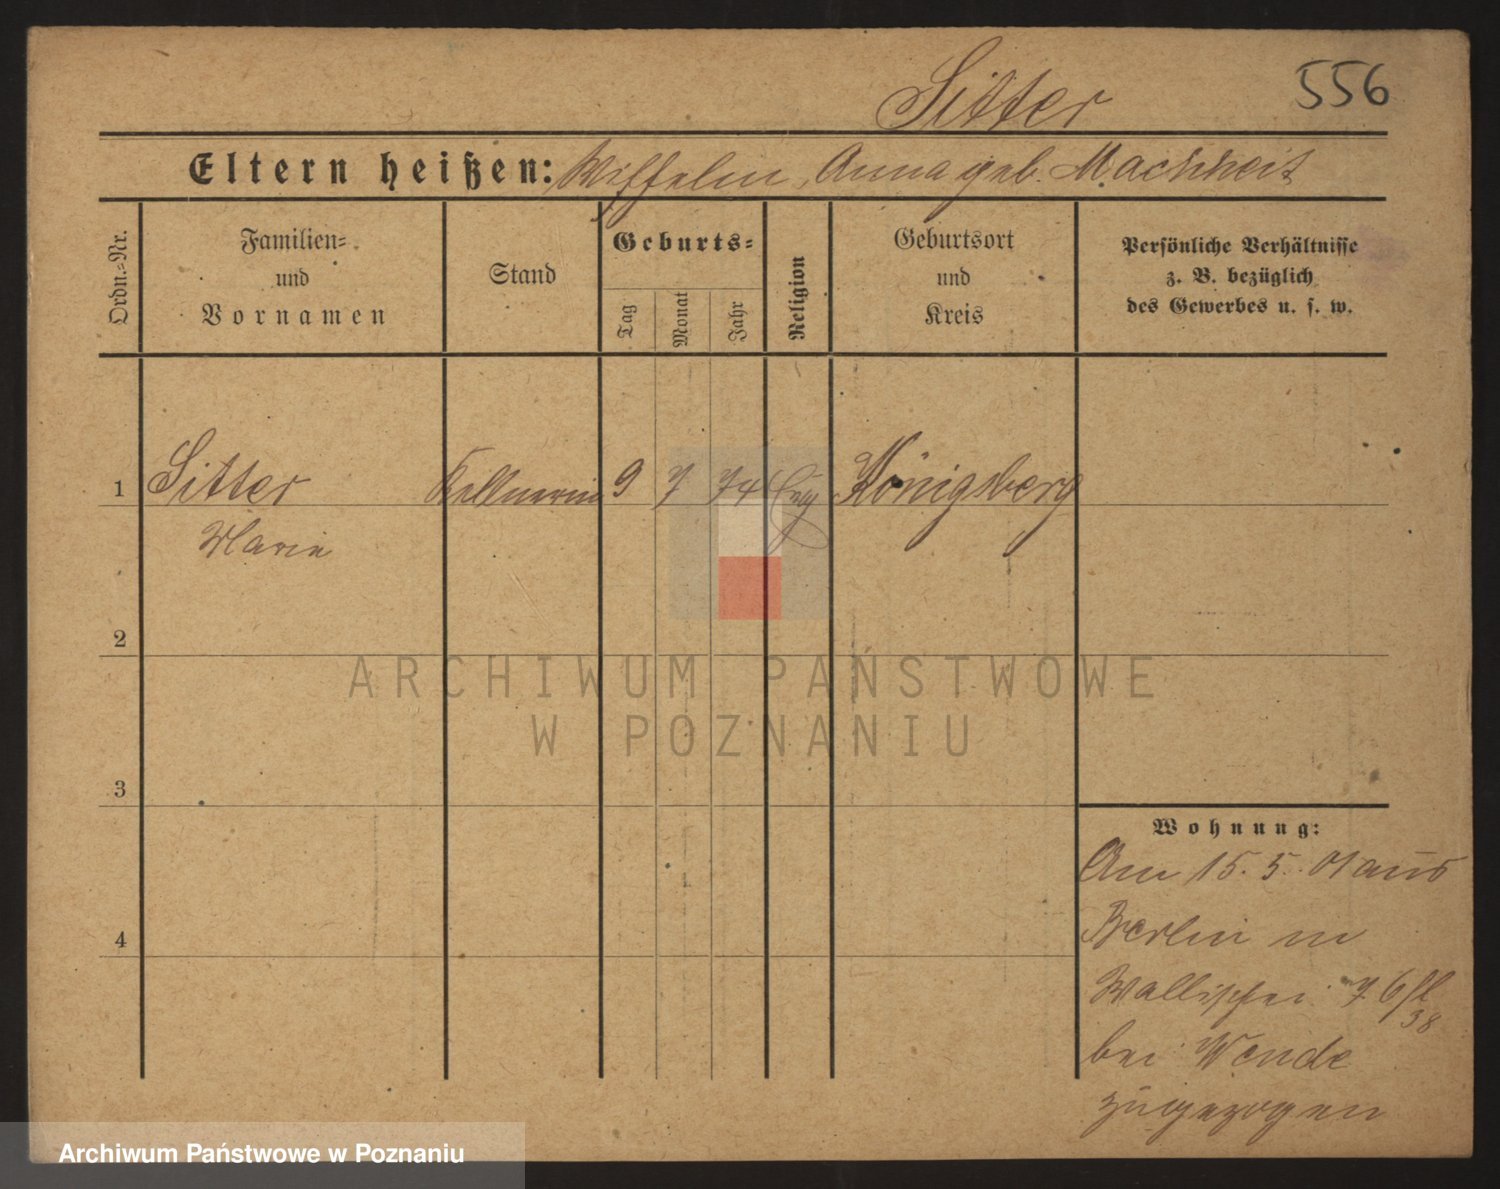 Sitter 556
Eltern heißen: Wilhelm, Anna geb. Machheit
Ordn.=Nr.
Familien=
und
Vornamen
Stand
Geburts=
Tag
Monat
Jahr
Religion
Geburtsort
und
Kreis
Persönliche Verhältnisse
z. B. bezüglich
des Gewerbes u. s. w.
1 Sitter Kellnerin 9 7 74 Evg Königsberg
Marie
2
ARCHIWUM PAŃSTWOWE
W POZNANIU
3
Wohnung:
Am 15. 5. 01 aus
4
Berlin in
Wallischei 76
38
bei Wende
zugezogen
Archiwum Państwowe w Poznaniu